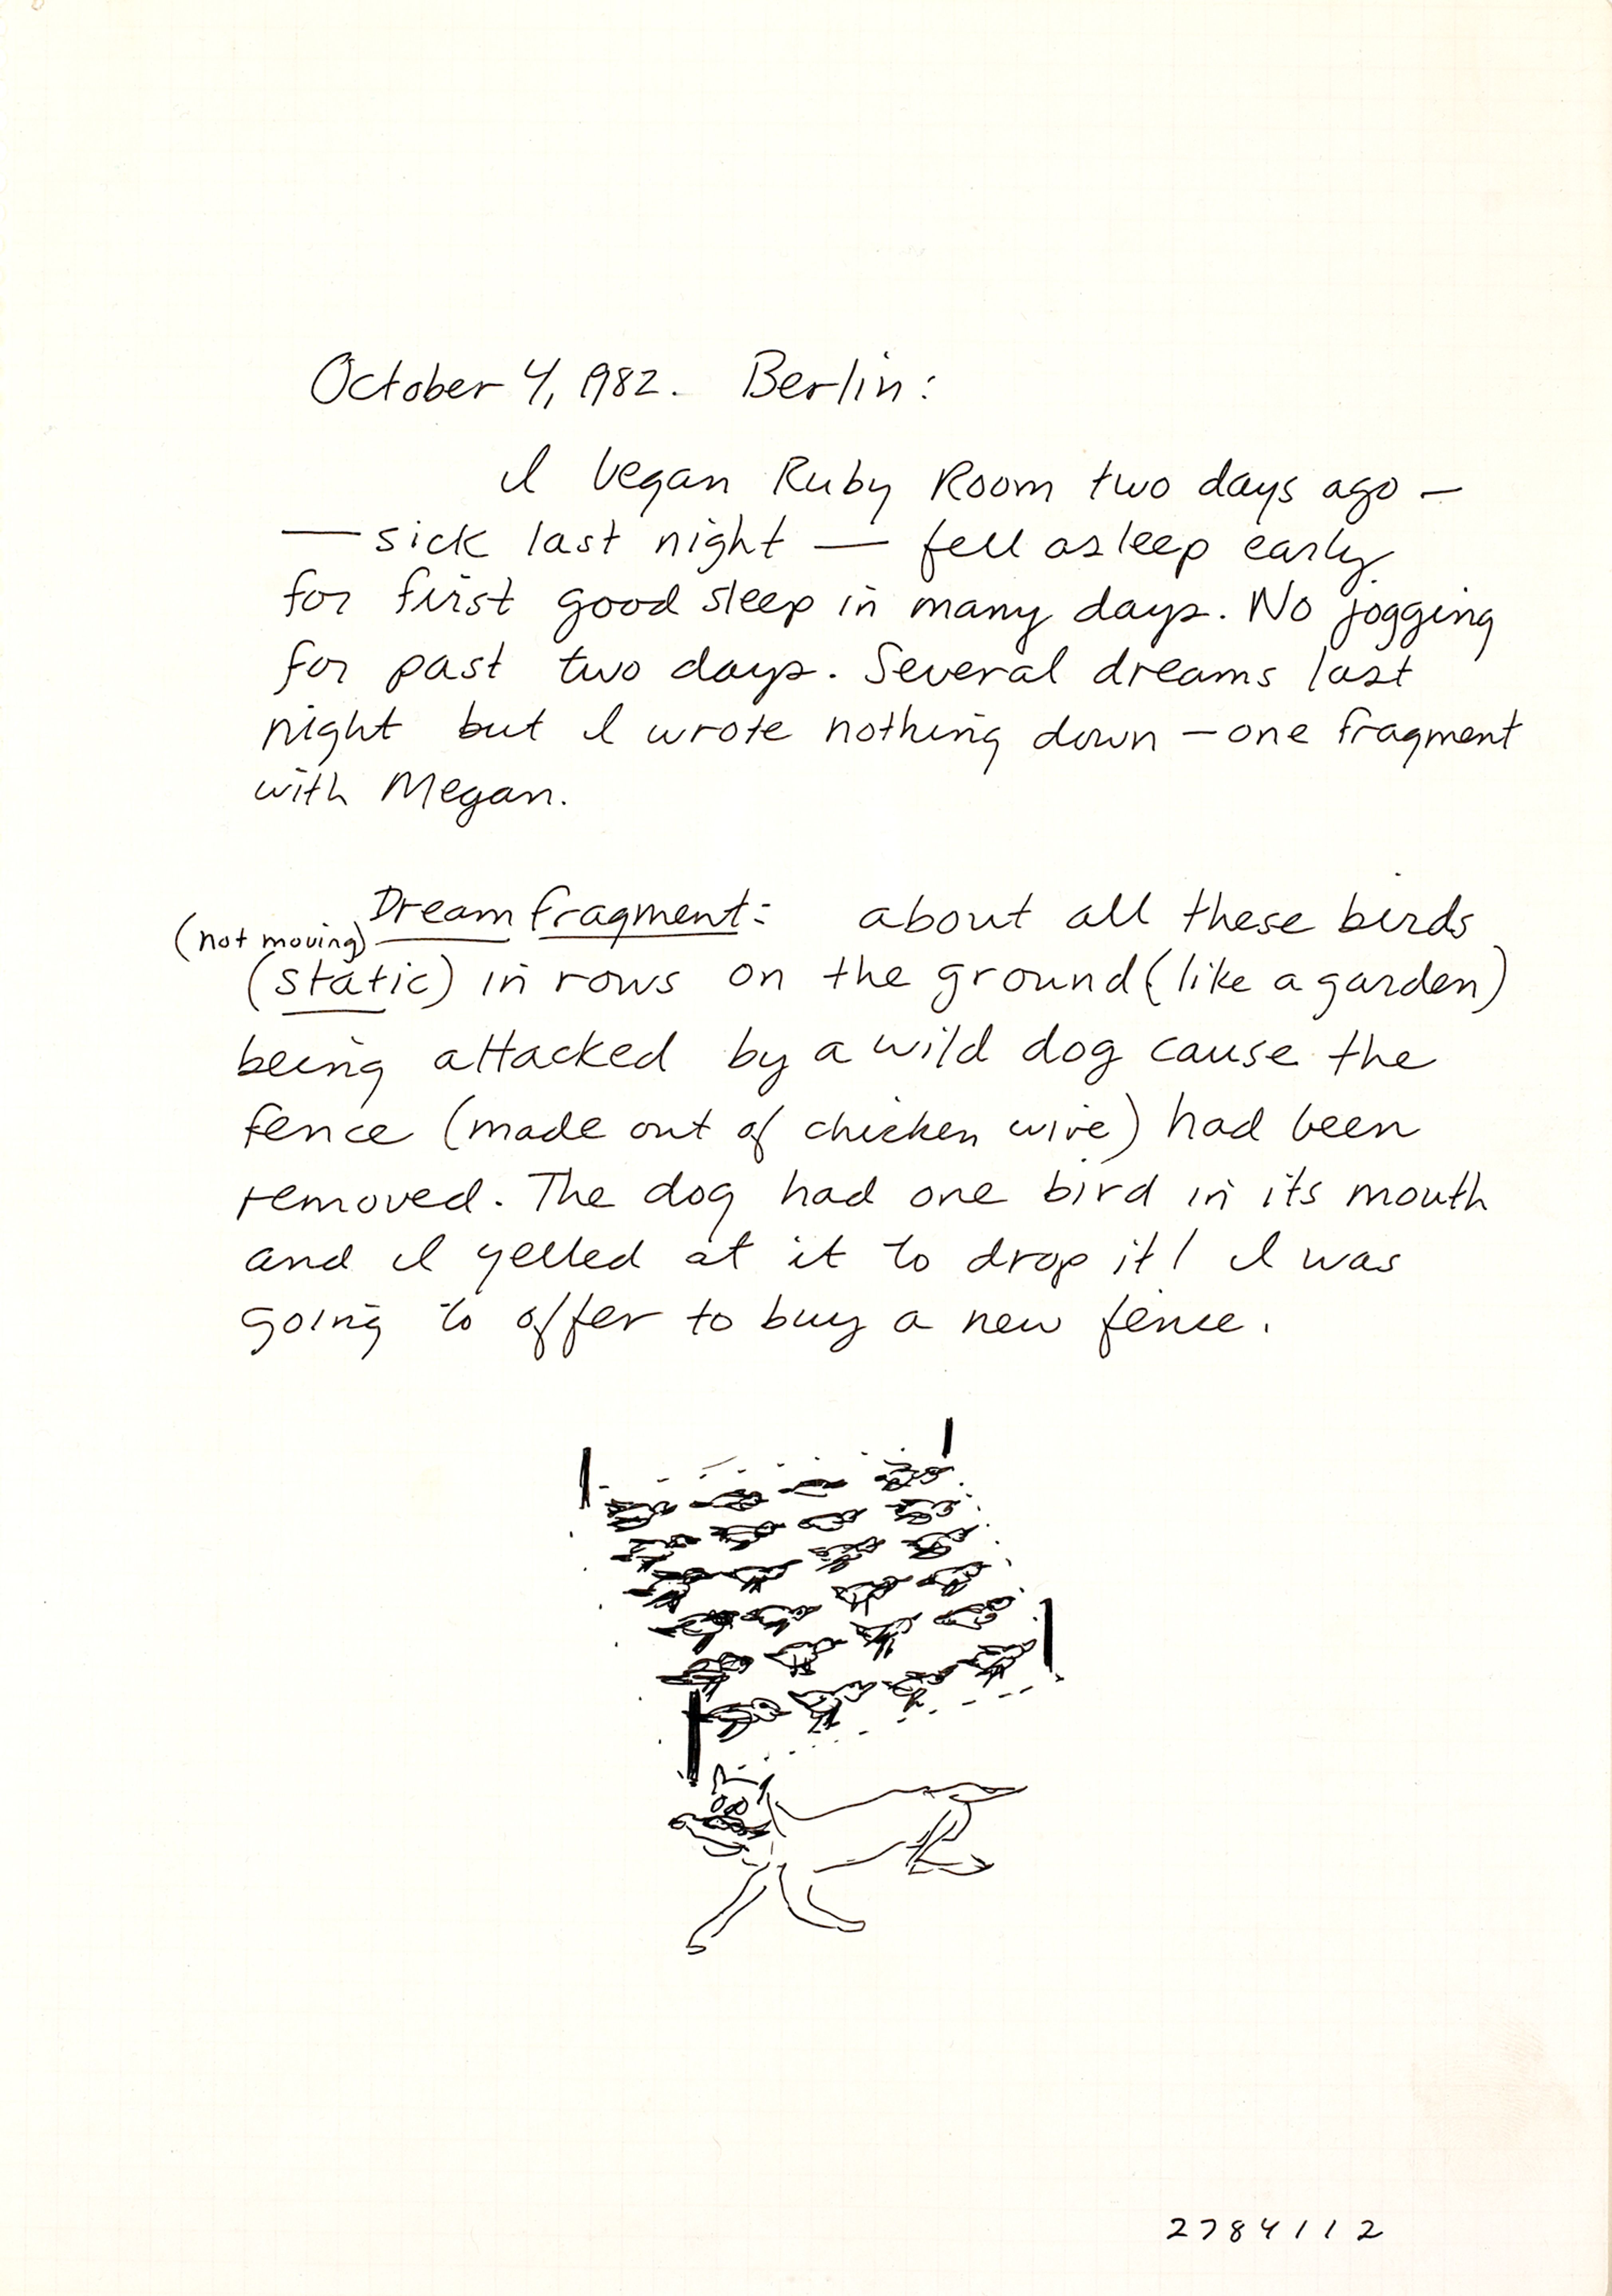 October 4, 1982. Berlin:
I began Ruby Room two days ago —
— sick last night — fell asleep early
for first good sleep in many days. No jogging
for past two days. Several dreams last
night but I wrote nothing down — one fragment
with Megan.
Dream fragment: about all these birds
(not moving)
(static) in rows on the ground (like a garden)
being attacked by a wild dog cause the
fence (made out of chicken wire) had been
removed. The dog had one bird in its mouth
and I yelled at it to drop it! I was
going to offer to buy a new fence.
2784112